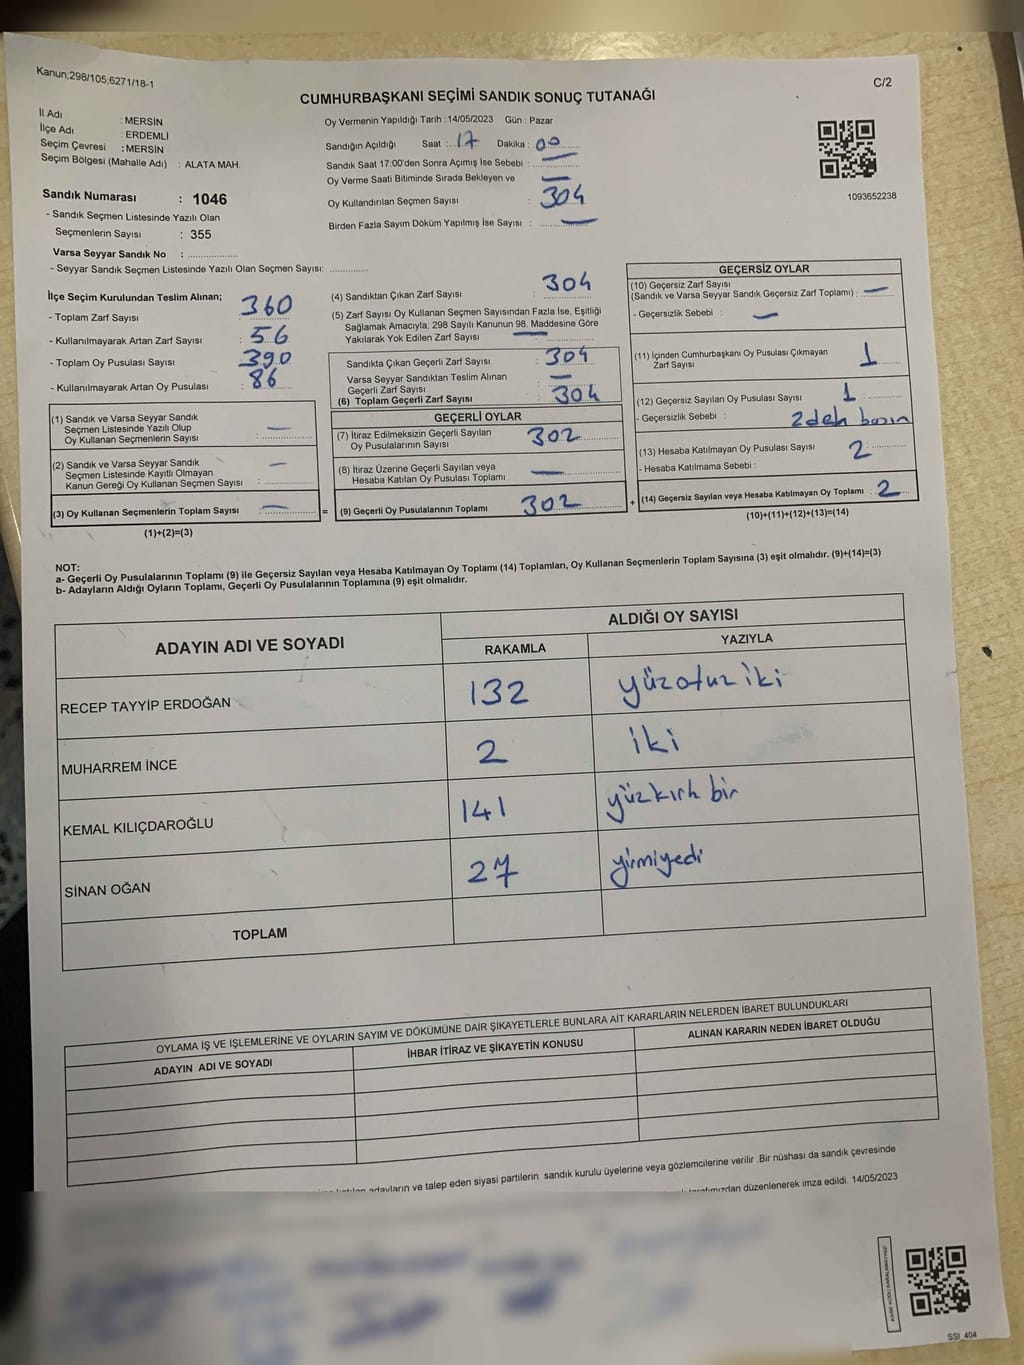 Kanun;298/105,6271/18-1
C/2
CUMHURBAŞKANI SEÇİMİ SANDIK SONUÇ TUTANAĞI
İl Adı : MERSİN
İlçe Adı : ERDEMLİ
Seçim Çevresi : MERSİN
Seçim Bölgesi (Mahalle Adı) : ALATA MAH.
Sandık Numarası : 1046
- Sandık Seçmen Listesinde Yazılı Olan
Seçmenlerin Sayısı : 355
Varsa Seyyar Sandık No : ..................
- Seyyar Sandık Seçmen Listesinde Yazılı Olan Seçmen Sayısı: ..............
Oy Vermenin Yapıldığı Tarih : 14/05/2023 Gün : Pazar
Sandığın Açıldığı Saat : 17 Dakika : 00
Sandık Saat 17:00'den Sonra Açımış İse Sebebi : —
Oy Verme Saati Bitiminde Sırada Bekleyen ve —
Oy Kullandırılan Seçmen Sayısı : 304
Birden Fazla Sayım Döküm Yapılmış İse Sayısı : —
1093652238
İlçe Seçim Kurulundan Teslim Alınan;
- Toplam Zarf Sayısı : 360
- Kullanılmayarak Artan Zarf Sayısı : 56
- Toplam Oy Pusulası Sayısı : 390
- Kullanılmayarak Artan Oy Pusulası : 86
(1) Sandık ve Varsa Seyyar Sandık
Seçmen Listesinde Yazılı Olup
Oy Kullanan Seçmenlerin Sayısı : —
(2) Sandık ve Varsa Seyyar Sandık
Seçmen Listesinde Kayıtlı Olmayan
Kanun Gereği Oy Kullanan Seçmen Sayısı : —
(3) Oy Kullanan Seçmenlerin Toplam Sayısı : —
(1)+(2)=(3)
=
(4) Sandıktan Çıkan Zarf Sayısı : 304
(5) Zarf Sayısı Oy Kullanan Seçmen Sayısından Fazla İse, Eşitliği
Sağlamak Amacıyla, 298 Sayılı Kanunun 98. Maddesine Göre
Yakılarak Yok Edilen Zarf Sayısı : —
Sandıkta Çıkan Geçerli Zarf Sayısı : 304
Varsa Seyyar Sandıktan Teslim Alınan
Geçerli Zarf Sayısı : —
(6) Toplam Geçerli Zarf Sayısı : 304
GEÇERLİ OYLAR
(7) İtiraz Edilmeksizin Geçerli Sayılan
Oy Pusulalarının Sayısı : 302
(8) İtiraz Üzerine Geçerli Sayılan veya
Hesaba Katılan Oy Pusulası Toplamı : —
(9) Geçerli Oy Pusulalarının Toplamı : 302
+
GEÇERSİZ OYLAR
(10) Geçersiz Zarf Sayısı
(Sandık ve Varsa Seyyar Sandık Geçersiz Zarf Toplamı) : —
- Geçersizlik Sebebi : —
(11) İçinden Cumhurbaşkanı Oy Pusulası Çıkmayan
Zarf Sayısı : 1
(12) Geçersiz Sayılan Oy Pusulası Sayısı : 1
- Geçersizlik Sebebi : 2deh basın
(13) Hesaba Katılmayan Oy Pusulası Sayısı : 2
- Hesaba Katılmama Sebebi :
(14) Geçersiz Sayılan veya Hesaba Katılmayan Oy Toplamı : 2
(10)+(11)+(12)+(13)=(14)
NOT:
a- Geçerli Oy Pusulalarının Toplamı (9) ile Geçersiz Sayılan veya Hesaba Katılmayan Oy Toplamı (14) Toplamları, Oy Kullanan Seçmenlerin Toplam Sayısına (3) eşit olmalıdır. (9)+(14)=(3)
b- Adayların Aldığı Oyların Toplamı, Geçerli Oy Pusulalarının Toplamına (9) eşit olmalıdır.
ADAYIN ADI VE SOYADI
ALDIĞI OY SAYISI
RAKAMLA YAZIYLA
RECEP TAYYİP ERDOĞAN 132 yüzotuziki
MUHARREM İNCE 2 iki
KEMAL KILIÇDAROĞLU 141 yüzkırk bir
SİNAN OĞAN 27 yirmiyedi
TOPLAM
OYLAMA İŞ VE İŞLEMLERİNE VE OYLARIN SAYIM VE DÖKÜMÜNE DAİR ŞİKAYETLERLE BUNLARA AİT KARARLARIN NELERDEN İBARET BULUNDUKLARI
ADAYIN ADI VE SOYADI İHBAR İTİRAZ VE ŞİKAYETİN KONUSU ALINAN KARARIN NEDEN İBARET OLDUĞU
adayların ve talep eden siyasi partilerin sandık kurulu üyelerine veya gözlemcilerine verilir .Bir nüshası da sandık çevresinde
tarafımızdan düzenlenerek imza edildi. 14/05/2023
SSI_404